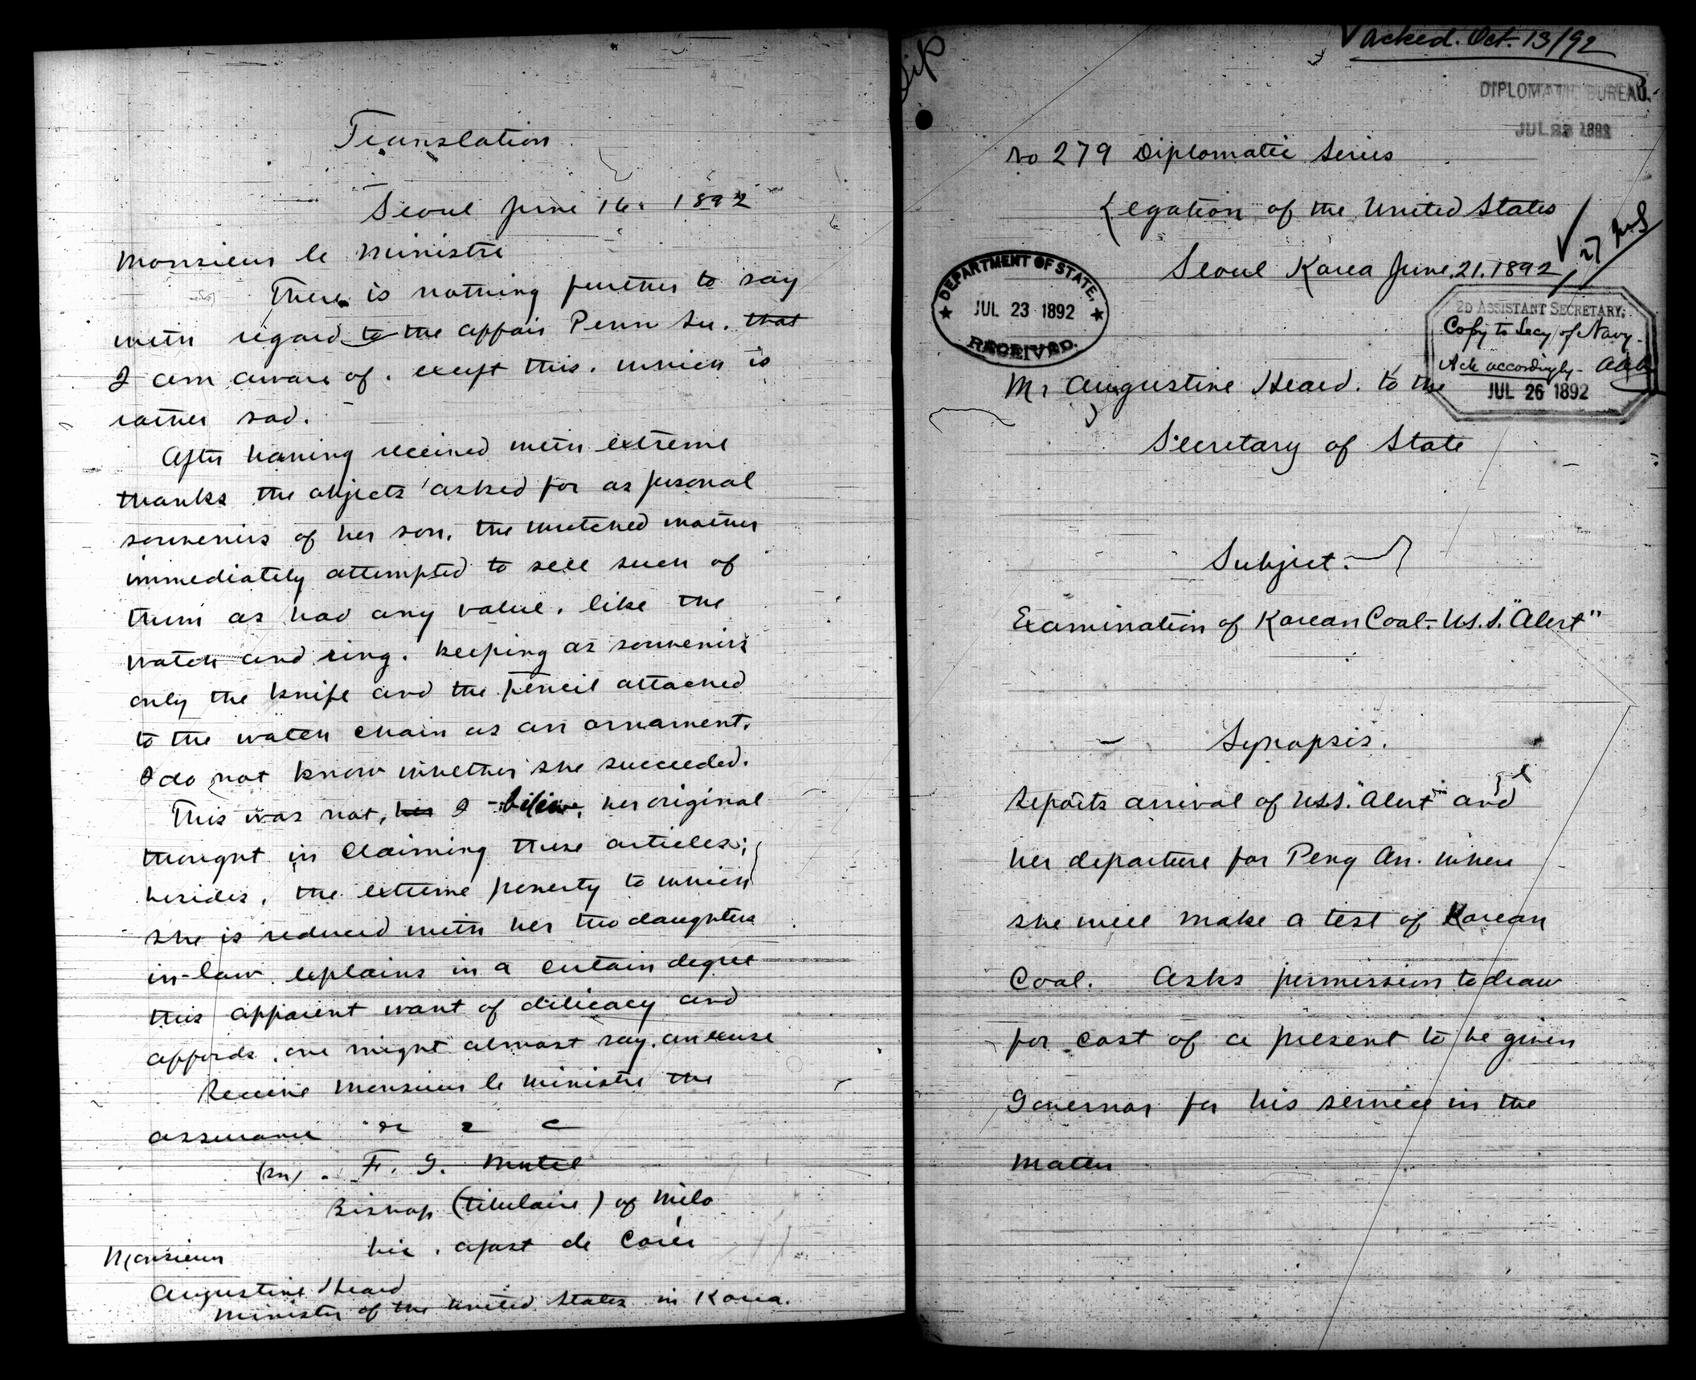 Translation
Seoul June 16. 1892
Monsieur le Ministre
There is nothing further to say
with regard to the affair Penn Su. that
I am aware of. except this. which is
rather sad.
After having received with extreme
thanks the objects asked for as personal
souvenirs of her son, the wretched mother
immediately attempted to sell such of
them as had any value, like the
watch and ring. keeping as souvenirs
only the knife and the pencil attached
to the watch chain as an ornament.
I do not know whether she succeeded.
This was not, her I believe, her original
thought in claiming these articles;
besides, the extreme poverty to which
she is reduced with her two daughters
in-law explains in a certain degree
this apparent want of delicacy and
affords, one might almost say, an excuse
Receive Monsieur le Ministre the
assurance &c & c
F. G. Mutel
Bishop (titulaire) of Milo
Vic. apost de Corée
Monsieur
Augustine Heard
Minister of the United States in Korea.
acked. Oct. 13/92
DIPLOMATIC BUREAU.
JUL 23 1892
No 279 Diplomatic Series
Legation of the United States
Seoul Korea June, 21, 1892
DEPARTMENT OF STATE.
JUL 23 1892
RECEIVED.
2D ASSISTANT SECRETARY.
Copy to Secy of Navy.
Ack accordingly. AAA
JUL 26 1892
Mr Augustine Heard. to the
Secretary of State
Subject.
Examination of Korean Coal- U.S.S. "Alert"
Synopsis.
Reports arrival of U.S.S. "Alert" and
her departure for Peng An. where
she will make a test of Korean
Coal. Asks permission to draw
for cost of a present to be given
Governor for his service in the
matter